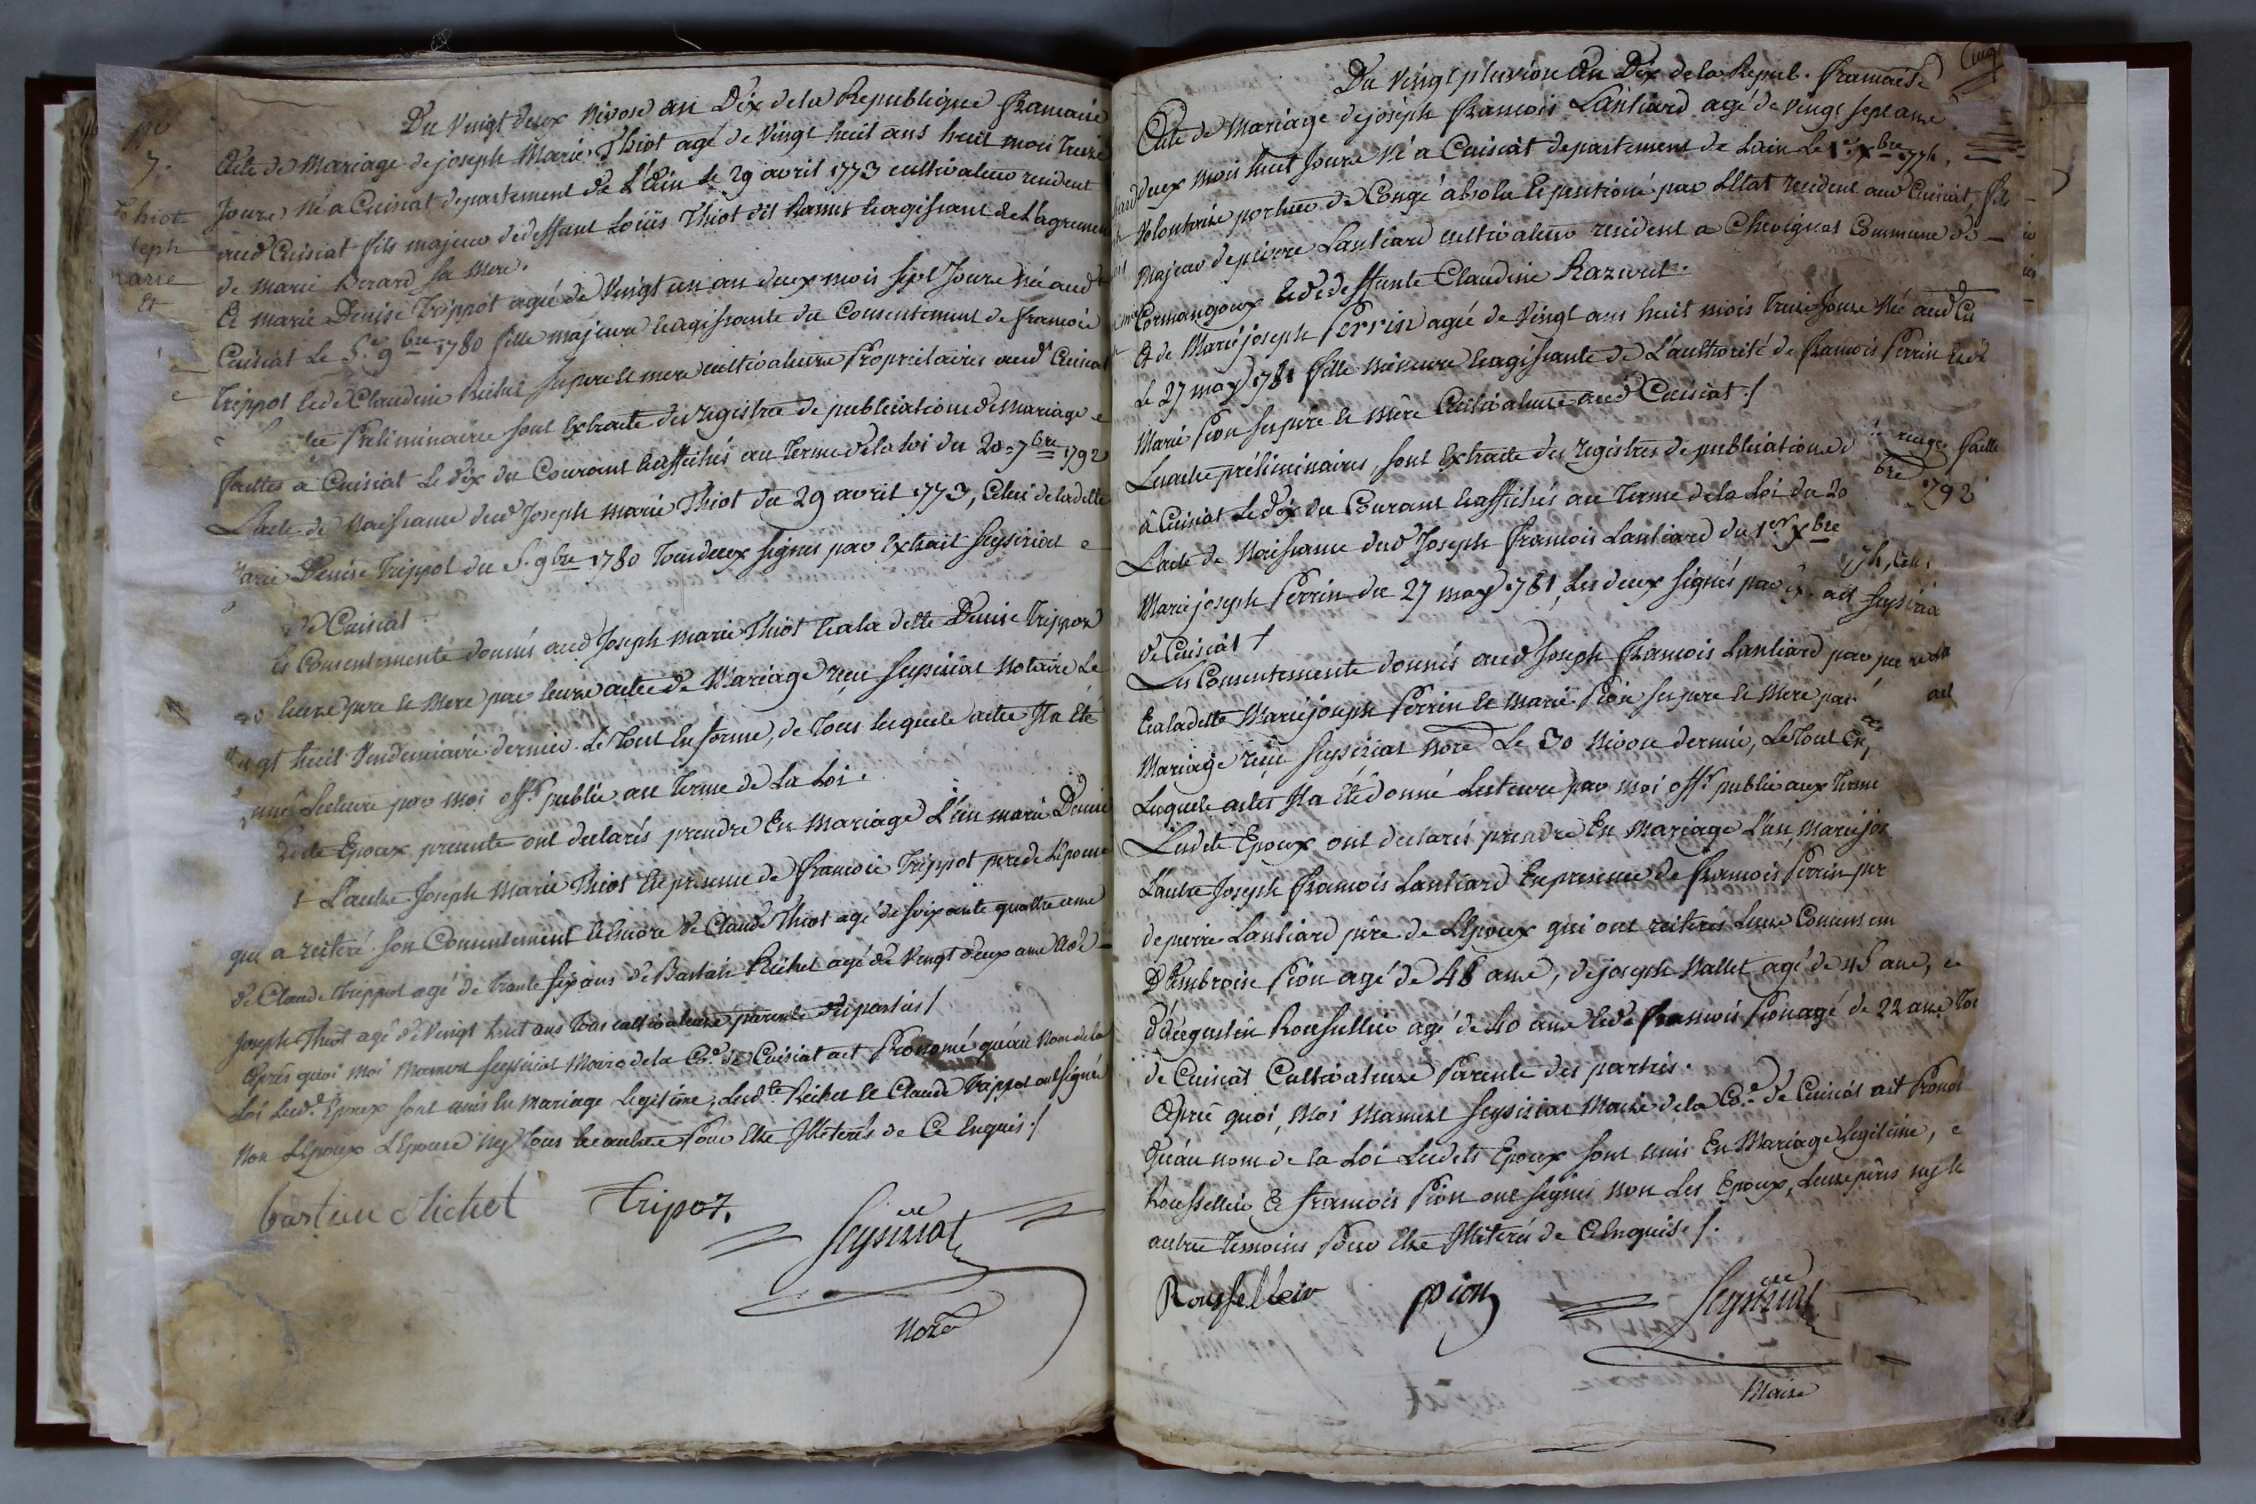 Du Vingt deux Nivose an Dix de la Republique francaise
No
7.
Acte de Mariage de joseph Marie Thiot agé de Vingt huit ans huit mois Treize
Jours Né a Cuisiat departement de L'Ain le 29 avril 1773 cultivateur resident
aud Cuisiat fils majeur de deffunt Loüis Thiot dit Ramus et agissant de L'agrement
de marie Berard sa mere.
Thiot
seph
marie
Et
Et marie Denise Trippot agée de Vingt un an deux mois sept Jours Née aud
Cuisiat Le 5e 9bre 1780 fille majeure et agissante du Consentement de francois
Trippot et de Claudine Richet ses pere et mere cultivateurs Propriétaires aud Cuisiat
Preliminaires sont Extraits des registres de publications de Mariage
faittes a Cuisiat Le dix du Courant et affichés au Terme de la loi du 20 7bre 1792
L'acte de Naissance dud Joseph marie Thiot du 29 avril 1773, Celui de ladette
Marie Denise Trippot du 5. 9bre 1780 Tous deux signés par Extrait Seysiriat
de Cuisiat
Les Consentements donnés aud Joseph Marie Thiot et a la dette Denise Trippot
leurs pere et Mere par leurs actes de Mariage reçu Seysiriat Notaire Le
Vingt huit Vendemiaire dernier. Le Tout En forme, de Tous lesquels actes Il a Eté
donné Lecture par moi offr public au Terme de La Loi.
Ledits Epoux presents ont declarés prendre En Mariage L'un marie Denise
L'autre Joseph Marie Thiot En presence de francois Trippot pere de L'Epouse
qui a reiteré son Consentement et Encore de Claude Thiot agé de soixante quattre ans
de Claude Trippot agé de trante six ans de Bastain Richet agé de Vingt deux ans et de
Joseph Thiot agé de Vingt huit ans tous cultivateurs parents des parties /
Après quoi Moi Mamert Seysiriat Maire de la Cne de Cuisiat ait Prononcé qu'au Nom de la
Loi Lesd. Epoux sont unis En mariage legitime, Lesd. Richet et Claude Trippot ont signés
Non L'Epoux L'Epouse Ny Tous les autres Pour Etre Illiterés de Ce Enquis. /
bastien Richet Tripoz.
Seysiriat
Nore
Du Vingt pluviose An Dix de la Repub. francaise
Acte de Mariage de joseph francois Lanliard agé de Vingt sept ans
deux mois huit Jours Né a Cuisiat departement de Lain Le 1er Xbre 1774,
Volontaire porteur de Congé absolu et pentioné par L'Etat resident aud Cuisiat, fils
Majeur de pierre Lanliard cultivateur resident a Chevignat Commune de
Cormangoux et de deffunte Claudine Razuret.
Et de Marie joseph Perrin agée de Vingt ans huit mois Treize Jours Née aud Cu
Le 27 may 1781 fille Mineure et agissante de L'authorité de francois Perrin et de
Marie Pion ses pere et mère Cultivateurs aud Cuisiat. /
Les actes préliminaires, sont Extraits des registres de publications de
riages faitte
à Cuisiat Le dix du Courant et affichés au Terme de la Loi du 20
bre
1792
L'acte de Naissance dud Joseph francois Lanliard du 1er Xbre
Marie joseph Perrin du 27 may 1781, Les deux signés par Ex ait Seysiria
de Cuisiat /
Les Consentements donnés aud Joseph francois Lanliard par
Et a la dette Marie joseph Perrin et marie Pion ses pere et Mere par
act
Mariage reçu Seysiriat Nore Le 30 Nivose dernier, Le Tout En
Lesquels actes Il a Eté donné Lecture par moi offr public aux Terme
Lesdts Epoux ont declarés prendre En Mariage L'un, Marie jos
L'autre Joseph francois Lanliard En presence de francois Perrin per
de pierre Lanliard père de L'Epoux qui ont reiterés Leurs Consentem
D'Ambroise Pion agé de 48 ans, de joseph Mallet agé de 45 ans, e
Rousselleir agé de 40 ans et de francois Pion agé de 22 ans Tou
de Cuisiat Cultivateurs Parents des parties.
Après quoi, Moi Mamert Seysiriat Maire de la Cne de Cuisiat ait Prono
Qu'au nom de la Loi Lesdts Epoux sont unis En Mariage legitime, e
Rousselleir Et francois Pion ont signés non Les Epoux, Leurs pères ny le
autres Temoins Pour Etre Illiterés de Ce Enquis. /.
Rousselleir ppion Seysiriat
Maire